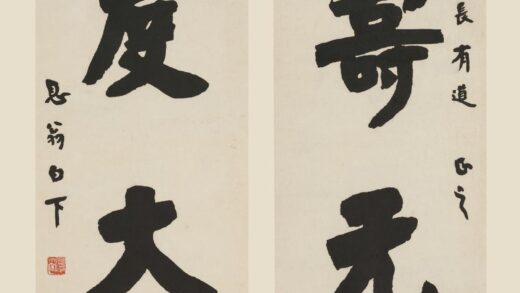 長有道 正之
壽
度大
息翁白下